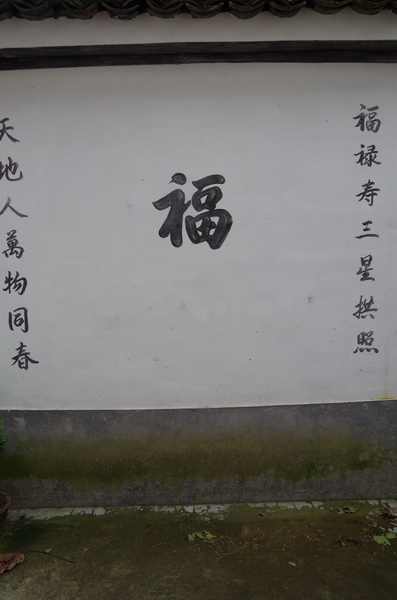 福禄寿三星拱照
福
天地人萬物同春